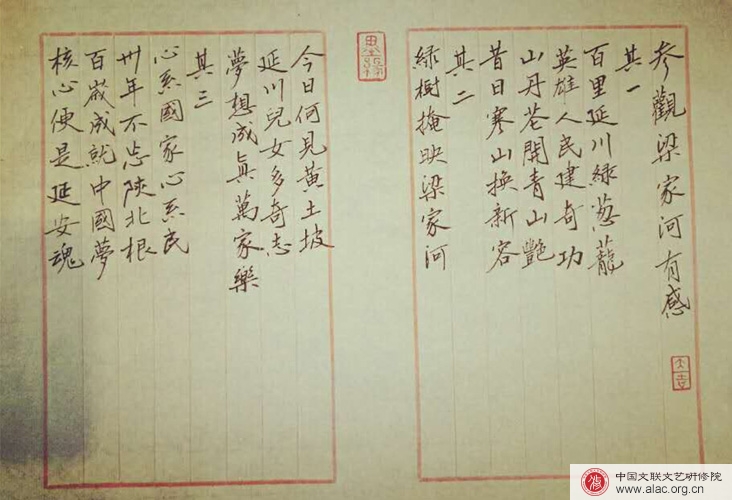 参觀梁家河有感
其一
百里延川綠葱蘢
英雄人民建奇功
山丹花開青山艷
昔日寒山換新容
其二
綠樹掩映梁家河
今日何見黃土坡
延川兒女多奇志
夢想成真萬家樂
其三
心系國家心系民
卅年不忘陝北根
百歲成就中國夢
核心便是延安魂
大吉
中国文联文艺研修院
www.alac.org.cn